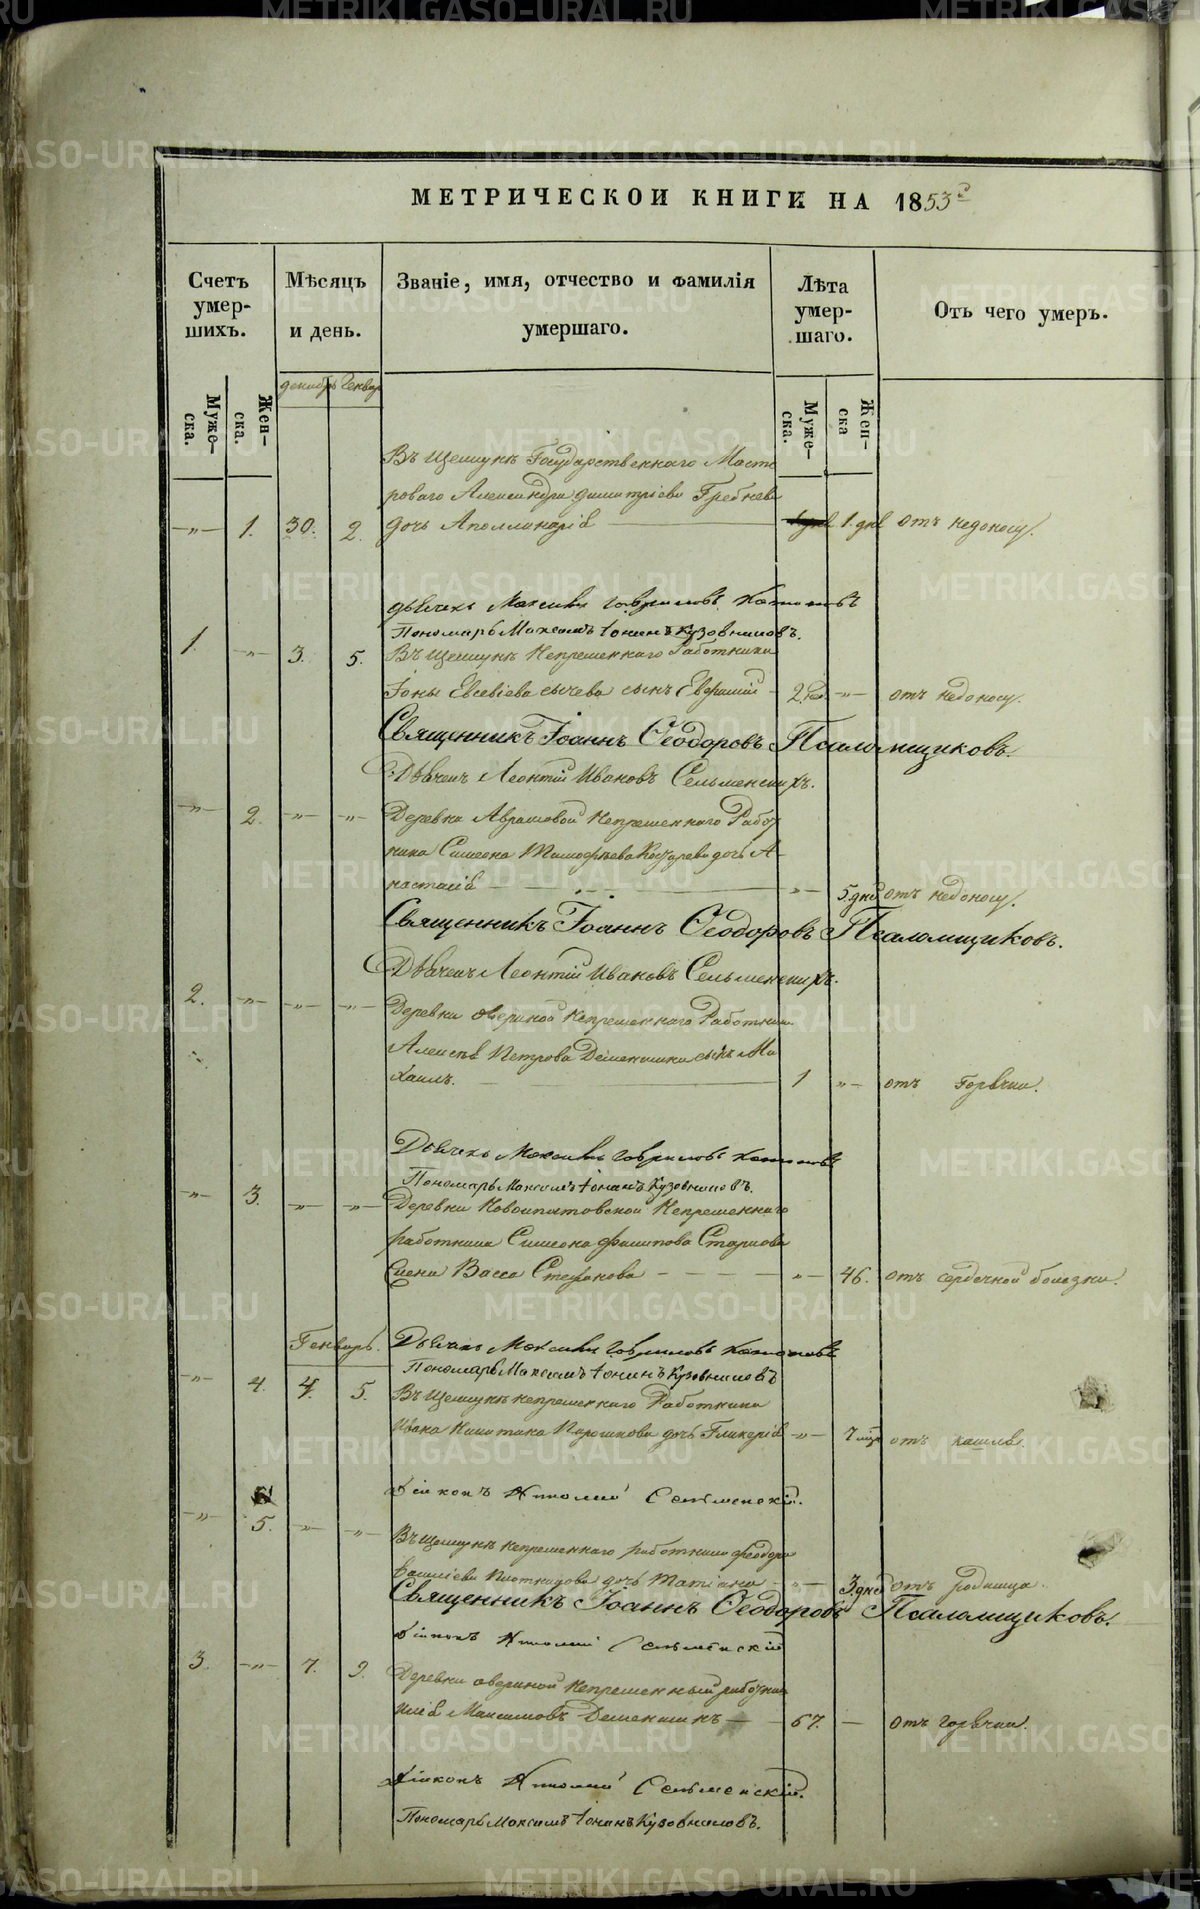 МЕТРИЧЕСКОИ КНИГИ НА 1853й
Счетъ умер- шихъ.
Мѣсяцъ и день.
Званіе, имя, отчество и фамилія умершаго.
Лѣта умер- шаго.
Отъ чего умеръ.
Муже- ска.
Жен- ска.
декабрь Генвар
Муже- ска.
Жен- ска
Въ Щемунѣ Государственнаго Масте
роваго Александра Димитріева Гребнева
-"- 1. 30. 2. дочь Аполлинарія 1. дня отъ недоносу.
дьячекъ Максимъ Гавриловъ
Пономарь Максимъ Іонинъ Кузовниковъ.
1. -"- 3. 5. Въ Щемунѣ Непременнаго Работника
Іоны Евсевіева Сычева сынъ 2. -"- отъ недоносу.
Священникъ Іоаннъ Ѳеодоровъ Псаломщиковъ.
Дьячекъ Леонтій Ивановъ Сельменскихъ.
-"- 2. -"- -"- Деревни Аврамовой Непременнаго Работ
ника Симеона Тимофеева дочь А-
настасія -"- 5. дней отъ недоносу.
Священникъ Іоаннъ Ѳеодоровъ Псаломщиковъ.
Дьячекъ Леонтій Ивановъ Сельменскихъ.
2. -"- -"- -"- Деревни Овериной Непременнаго Работника
Алексѣя Петрова Деменшина сынъ Ми
хаилъ. 1 -"- отъ Горячки.
Дьячекъ Максимъ Гавриловъ
Пономарь Максимъ Іонинъ Кузовниковъ.
-"- 3. -"- -"- Деревни Новоипатовской Непременнаго
работника Симеона Филипова Старкова
жена Васса Стефанова -"- 46. отъ сердечной болезни.
Генварь. Дьячекъ Максимъ Гавриловъ
Пономарь Максимъ Іонинъ Кузовниковъ
-"- 4. 4. 5. Въ Щемунѣ непременнаго Работника
Ивана Никитина Порошкова дочь Гликерія -"- 7 мѣс отъ кашля.
Діаконъ Сельменскій.
-"- 5. -"- -"- Въ Щемунѣ непременнаго работника Феодора
Василіева Плотникова дочь Татіана -"- 3. дней отъ родимца.
Священникъ Іоаннъ Ѳеодоровъ Псаломщиковъ.
Діаконъ Сельменскій
3. -"- 7. 9. Деревни Овериной Непременный работник
Илія Максимовъ Деменшинъ 67. — Отъ Горячки.
Діаконъ Сельменскій.
Пономарь Максимъ Іонинъ Кузовниковъ.
METRIKI.GASO-URAL.RU